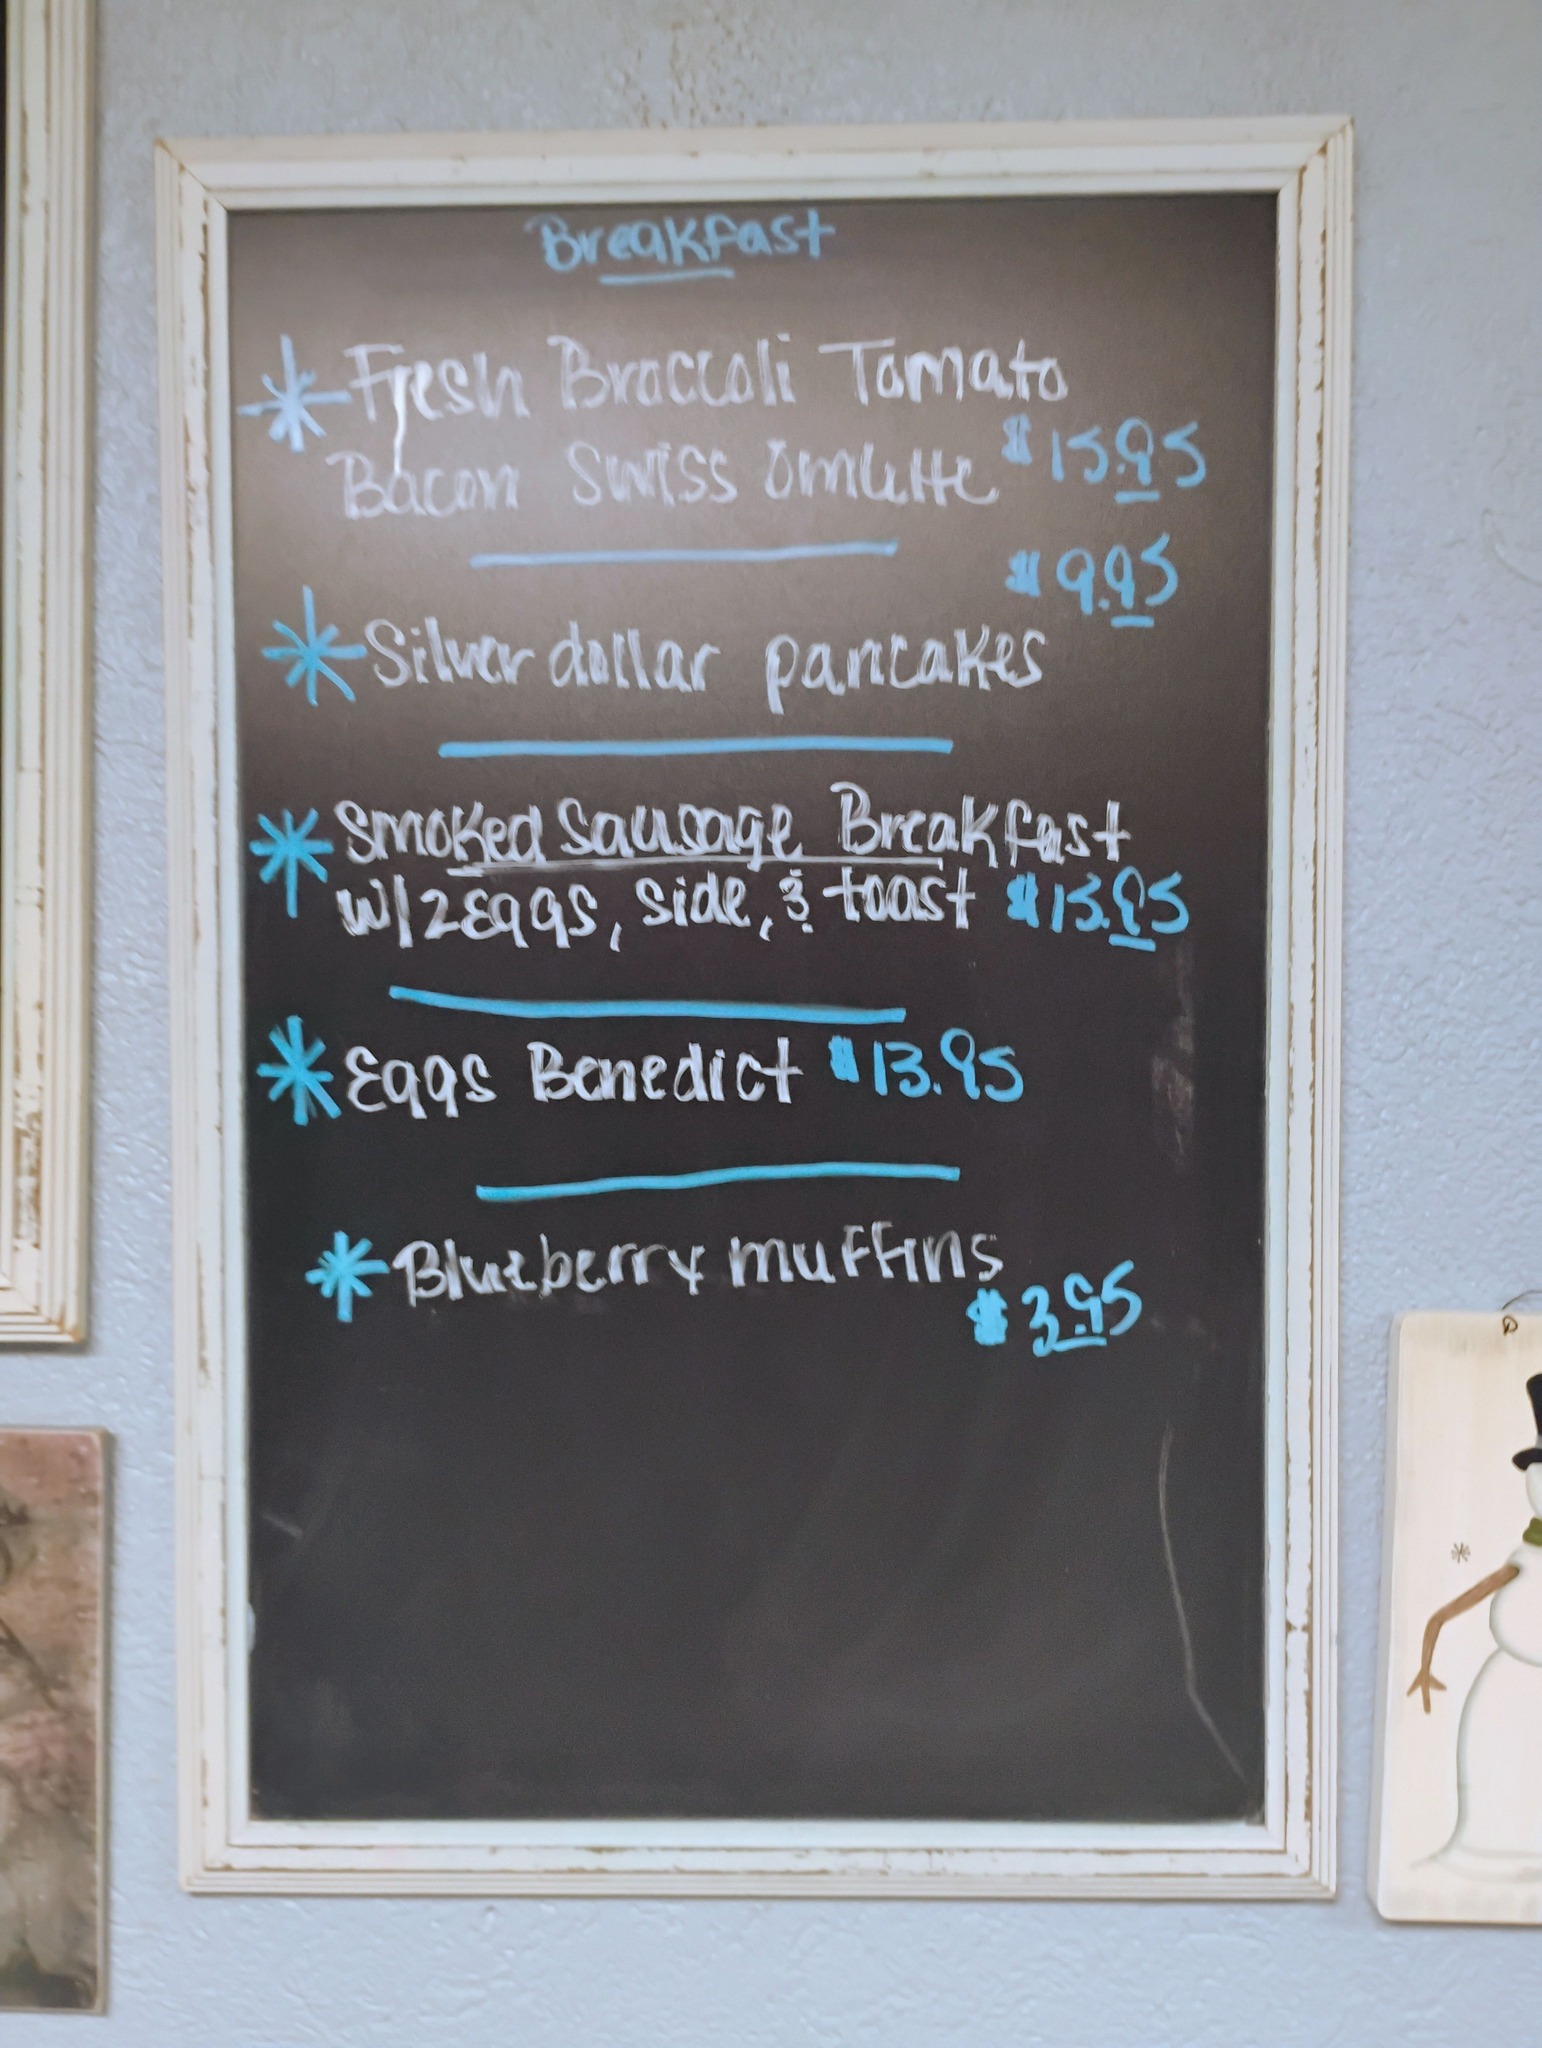 Breakfast
Fresh Broccoli Tomato
Bacon Swiss Omlette $15.95
$9.95
Silver dollar pancakes
Smoked Sausage Breakfast
w/2Eggs, side, & toast $15.95
Eggs Benedict $13.95
Blueberry muffins
$3.95